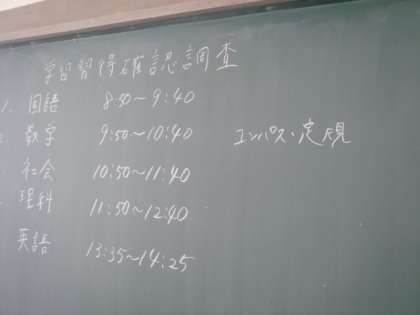 学習習得確認調査
1. 国語 8:50～9:40
数学 9:50～10:40 コンパス・定規
社会 10:50～11:40
理科 11:50～12:40
英語 13:35～14:25